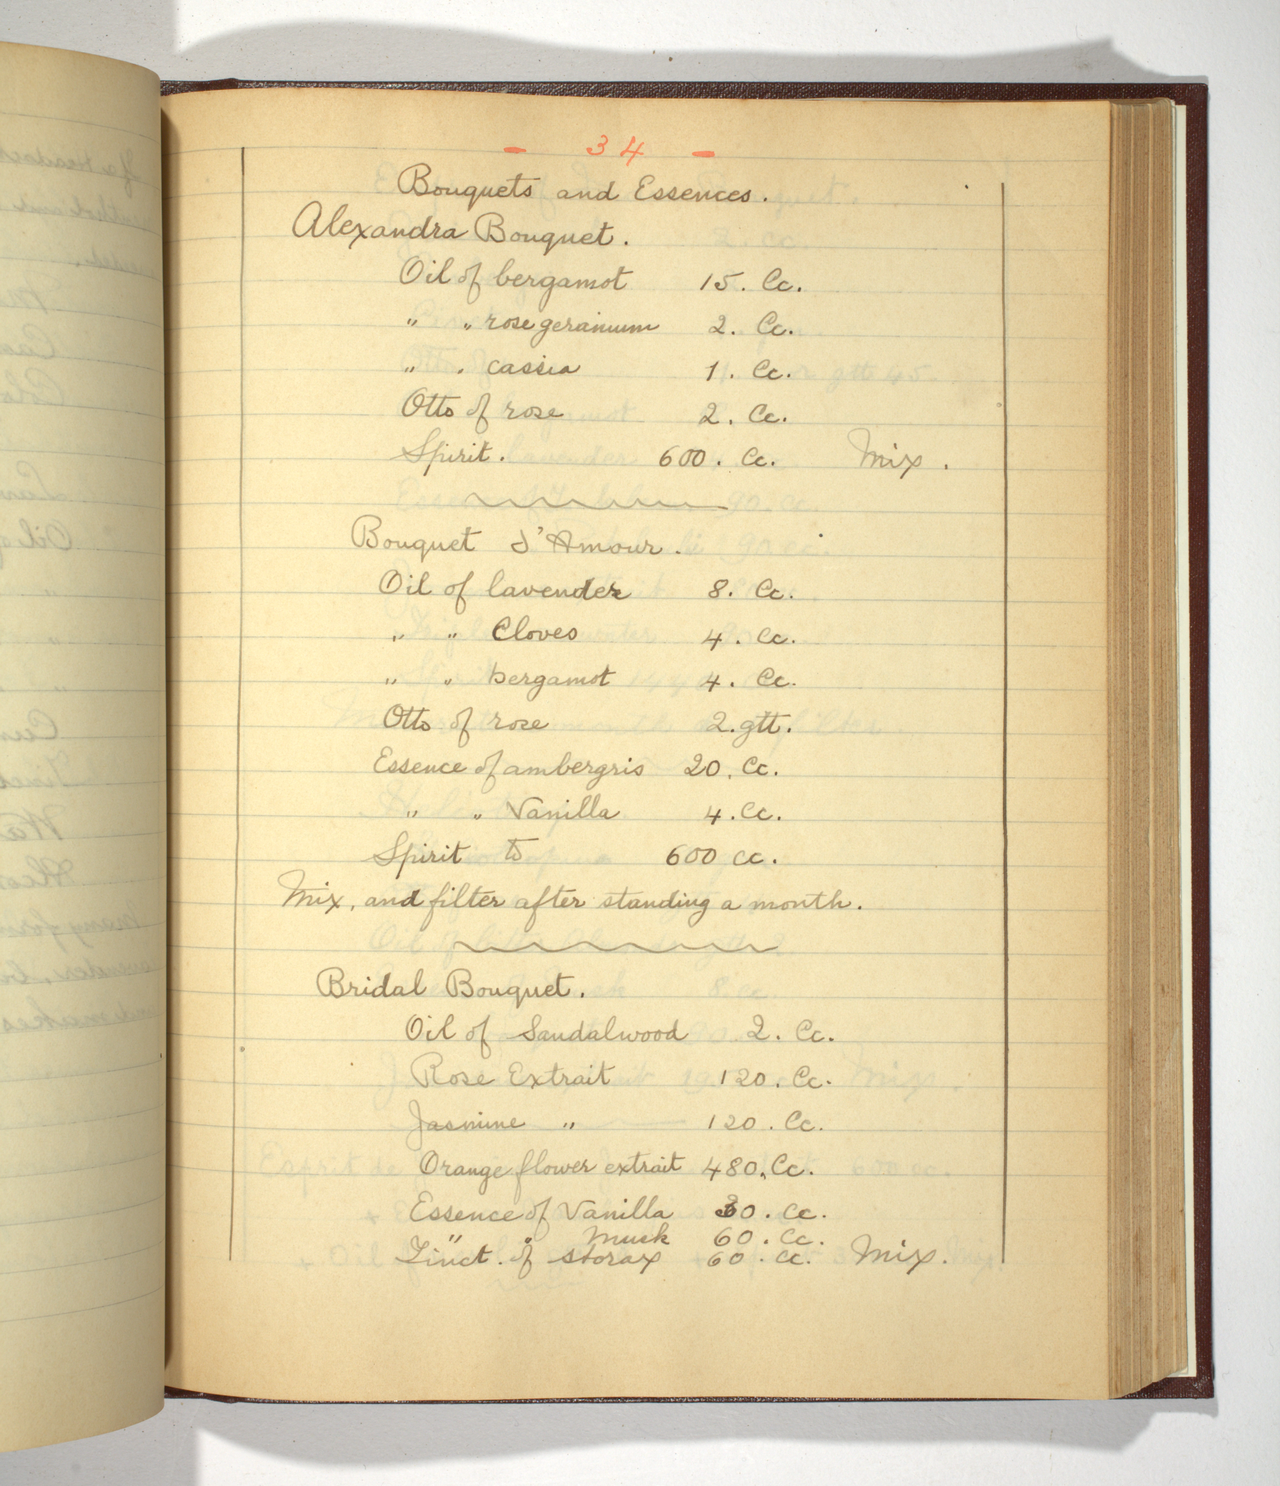 - 34 -
Bouquets and Essences.
Alexandra Bouquet.
Oil of bergamot 15. Cc.
" " rose geranium 2. Cc.
" " cassia 1. Cc.
Otto of rose 2. Cc.
Spirit. 600. Cc. Mix.
Bouquet d'Amour.
Oil of lavender 8. Cc.
" " Cloves 4. Cc.
" " bergamot 4. Cc.
Otto of rose 2. gtt.
Essence of ambergris 20. Cc.
" " Vanilla 4. Cc.
Spirit to 600 cc.
Mix, and filter after standing a month.
Bridal Bouquet.
Oil of Sandalwood 2. Cc.
Rose Extrait 120. Cc.
Jasmine " 120. Cc.
Orange flower extrait 480. Cc.
Essence of Vanilla 30. Cc.
" " Musk 60. Cc.
Tinct. of storax 60. Cc. Mix.